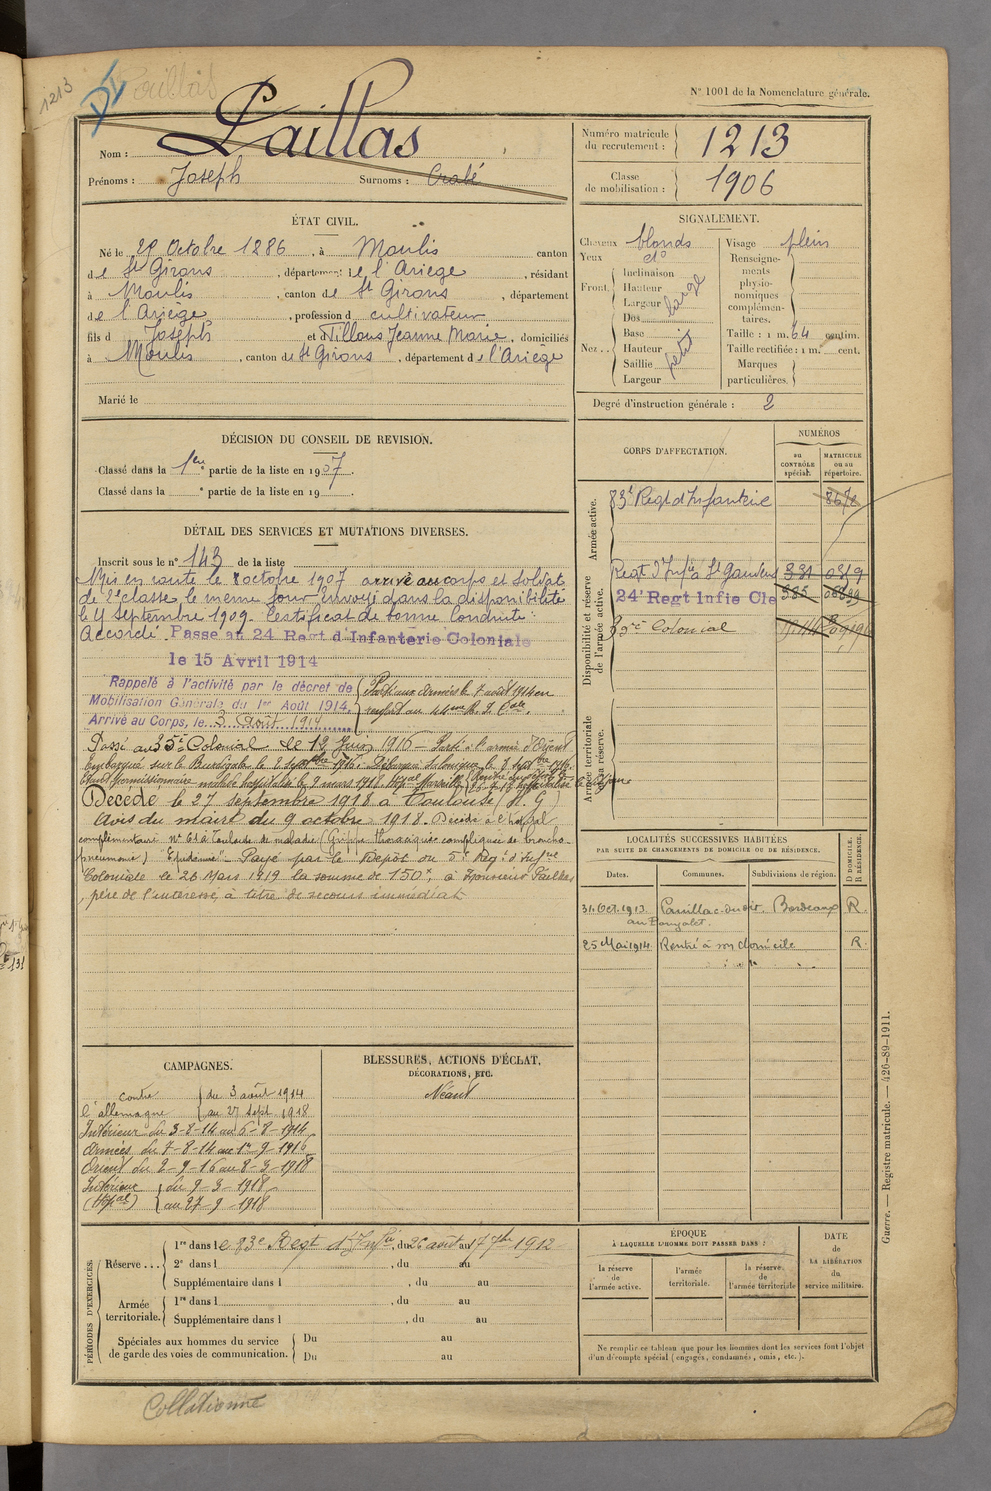 1213
Paillas
N° 1001 de la Nomenclature générale.
Nom : Paillas
Prénoms : Joseph Surnoms :
Numéro matricule du recrutement : 1213
Classe de mobilisation : 1906
ÉTAT CIVIL.
Né le 29 Octobre 1286, à Moulis canton
de St Girons, département de l'Ariège, résidant
à Moulis, canton de St Girons, département
de l'Ariège, profession d cultivateur
fils d Joseph et d Tillous Jeanne Marie, domiciliés
à Moulis, canton de St Girons, département de l'Ariège
Marié le
SIGNALEMENT.
Cheveux blonds
Yeux do
Front. Inclinaison
Hauteur
Largeur large
Nez.. Dos
Base
Hauteur petit
Saillie
Largeur
Visage plein
Renseignements physionomiques complémentaires.
Taille : 1 m. 64 centim.
Taille rectifiée : 1 m. cent.
Marques particulières.
Degré d'instruction générale : 2
DÉCISION DU CONSEIL DE REVISION.
Classé dans la 1ere partie de la liste en 1907.
Classé dans la e partie de la liste en 19
CORPS D'AFFECTATION.
NUMÉROS
au CONTRÔLE spécial.
MATRICULE ou au répertoire.
Armée active.
83e Regt d'Infanterie
Disponibilité et réserve de l'armée active.
Regt d'Infie à St Gaudens 331 0319
24e Regt Infie Cle 385
35e Colonial
Armée territoriale et sa réserve.
DÉTAIL DES SERVICES ET MUTATIONS DIVERSES.
Inscrit sous le n° 143 de la liste
Mis en route le 7 octobre 1907 arrivé au corps et soldat
de 2e classe le même jour envoyé dans la disponibilité
le 4 Septembre 1909. Certificat de bonne conduite
Accordé. Passé au 24 Regt d'Infanterie Coloniale
le 15 Avril 1914
Rappelé à l'activité par le décret de
Mobilisation Générale du 1er Août 1914.
Arrivé au Corps, le 3 Août 1914
Parti aux armées le 7 août 1914 en
renfort au 44me R. I. Cole.
Passé au 35e Colonial le 12 Juin 1916 — Parti à l'armée d'Orient
Embarqué sur le Burdigala le 2 septbre 1916. Débarqué Salonique le 9 septbre 1916.
Etant permissionnaire malade hospitalisé le 9 mars 1918 Hopal Marseille
Décédé le 27 septembre 1918 à Toulouse (H. G)
Avis du maire du 9 octobre 1918. Décédé à l'hôpital
complémentaire n° 61 à Toulouse de maladie (Grippe thoracique compliquée de broncho
pneumonie) "Epidémie". Payé par le Dépôt du 5e Regt d'Infrie
Coloniale le 26 Mars 1919 la somme de 150f, à Monsieur Paillas
père de l'intéressé, à titre de secours immédiat
LOCALITÉS SUCCESSIVES HABITÉES
PAR SUITE DE CHANGEMENTS DE DOMICILE OU DE RÉSIDENCE.
Dates. Communes. Subdivisions de région. D DOMICILE. R RÉSIDENCE.
31 Oct. 1913 Bordeaux R.
25 Mai 1914 Rentré à son domicile R.
CAMPAGNES.
contre l'allemagne du 3 août 1914
au 27 Sept 1918
Intérieur du 3-8-14 au 6-8-1914
Armées du 7-8-14 au 1er-9-1916
Orient du 2-9-16 au 8-3-1918
Intérieur (Hopal) du 9-3-1918
au 27-9-1918
BLESSURES, ACTIONS D'ÉCLAT,
DÉCORATIONS, ETC.
Néant
PÉRIODES D'EXERCICES.
Réserve... 1re dans le 83e Regt d'Infie, du 26 août au 17 7bre 1912
2e dans l , du au
Supplémentaire dans l , du au
Armée territoriale. 1re dans l , du au
Supplémentaire dans l , du au
Spéciales aux hommes du service de garde des voies de communication. Du au
Du au
ÉPOQUE
À LAQUELLE L'HOMME DOIT PASSER DANS :
la réserve de l'armée active.
l'armée territoriale.
la réserve de l'armée territoriale
DATE de LA LIBÉRATION du service militaire.
Ne remplir ce tableau que pour les hommes dont les services font l'objet
d'un décompte spécial (engagés, condamnés, omis, etc.).
Guerre. — Registre matricule. — 426-89-1911.
Collationné